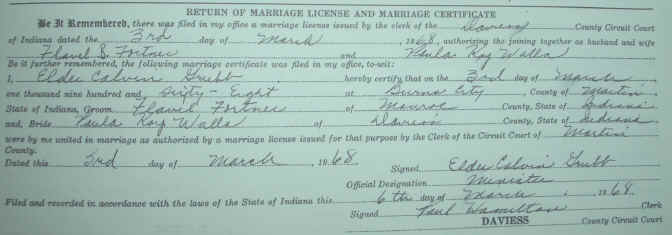 RETURN OF MARRIAGE LICENSE AND MARRIAGE CERTIFICATE
Be It Remembered, there was filed in my office a marriage license issued by the clerk of the Daviess County Circuit Court
of Indiana dated the 3rd day of March, 1968, authorizing the joining together as husband and wife
Flavel S. Fortner and Paula Kay Walls
Be it further remembered, the following marriage certificate was filed in my office, to-wit:
I, Elder Calvin Grubb hereby certify that on the 3rd day of March
one thousand nine hundred and, Sixty-Eight at Burns City, County of Martin
State of Indiana, Groom, Flavel Fortner of Monroe County, State of Indiana
and, Bride Paula Kay Walls of Daviess County, State of Indiana
were by me united in marriage as authorized by a marriage license issued for that purpose by the Clerk of the Circuit Court of Martin
County.
Dated this 3rd day of March, 1968. Signed Elder Calvin Grubb
Official Designation Minister
Filed and recorded in accordance with the laws of the State of Indiana this 6th day of March, 1968.
Signed Paul Hamilton Clerk
DAVIESS County Circuit Court